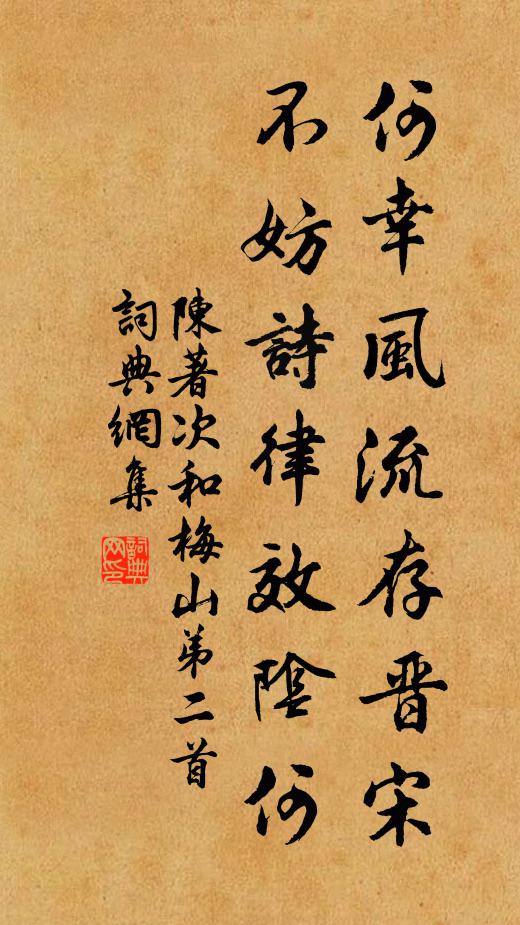 何幸風流存晋宋
不妨詩律效陰何
陳著次和梅山弟二首
詞典網集
詞典網印